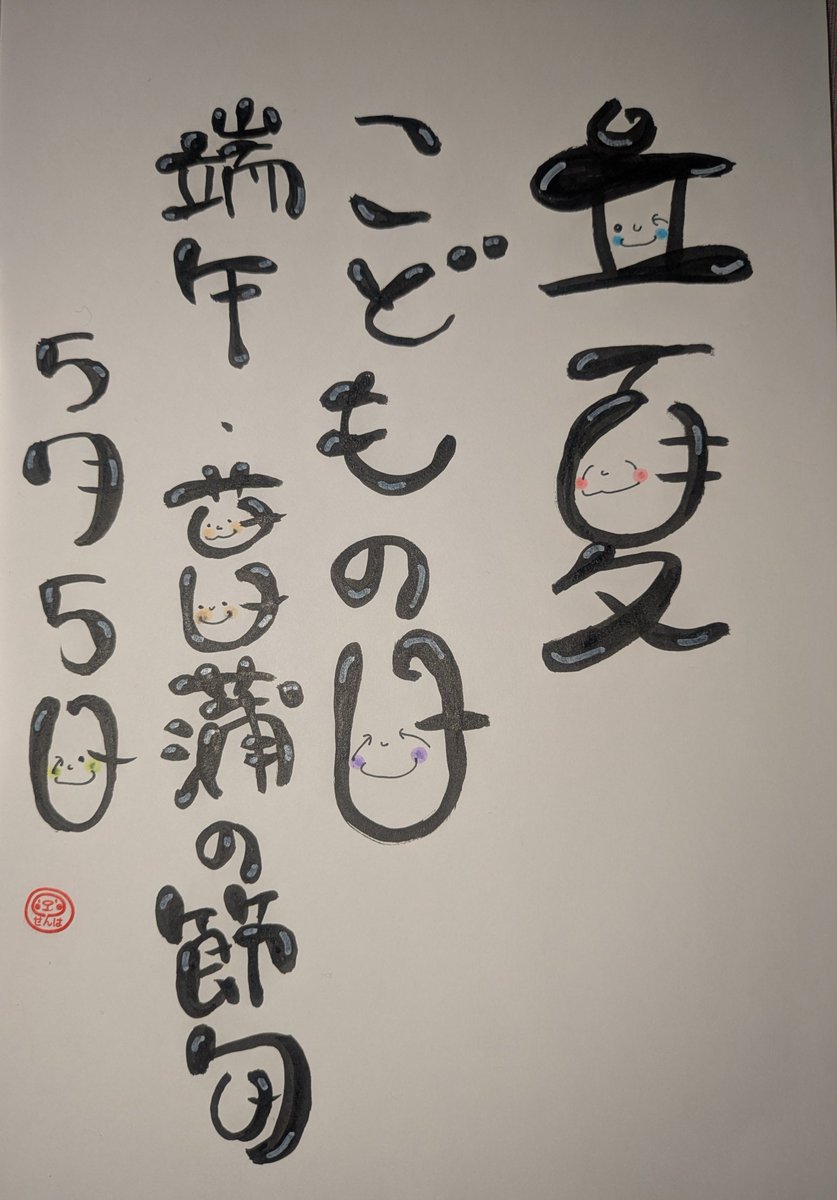 立夏
こどもの日
端午・菖蒲の節句
5月5日
ぜんは